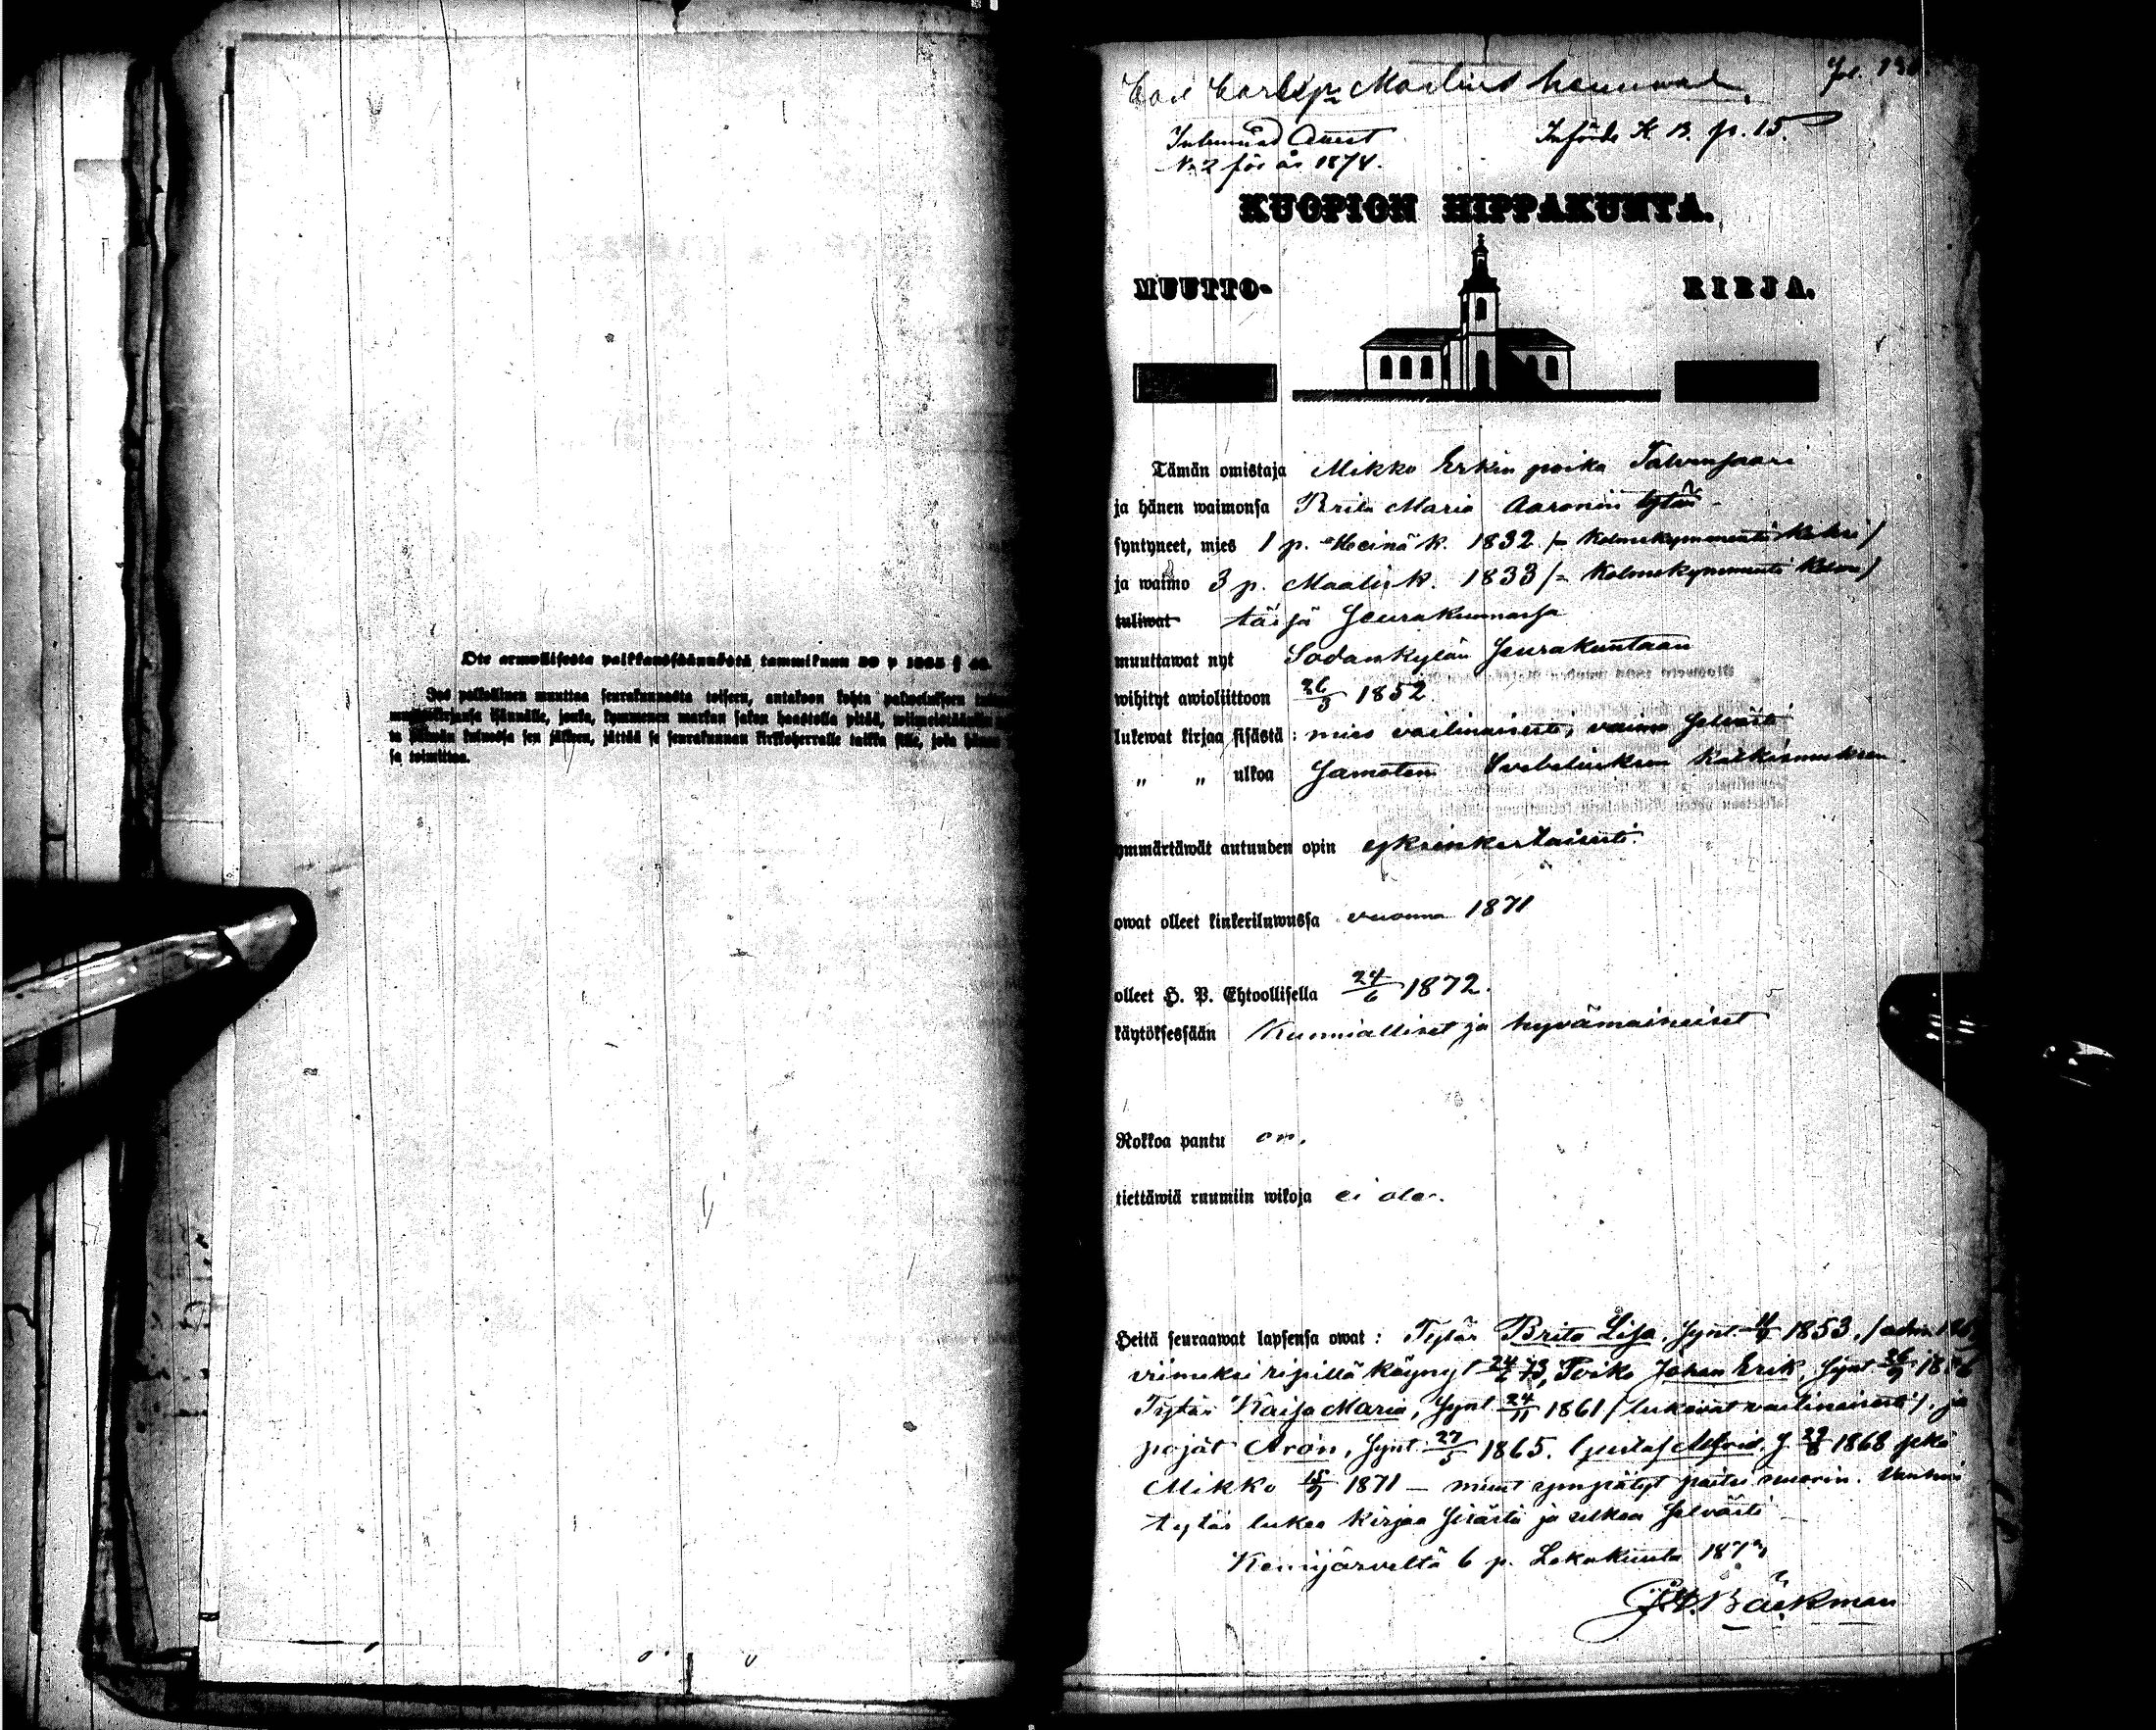 Ote armollisesta palkkaussäännöstä tammikuun 30 p 1865 §
Jos palkollinen muuttaa seurakunnasta toiseen, antakoon kohta palvelukseen
muuttokirjansa isännälle, jonka, kymmenen markan sakon haastolla pitää, wiimeistäänkin
ta päiwän kuluessa sen jälkeen, jättää se seurakunnan kirkkoherralle taikka sille, joka hänen
sa toimittaa.
Fol.
Inlemnad Attest
Införde K. B. p. 15.
No 2 för år 1874.
KUOPION HIPPAKUNTA.
MUUTTO- KIRJA.
Tämän omistaja Mikko Erkin poika Talvensaari
ja hänen waimonsa Brita Maria Aaronin tytär
syntyneet, mies 1 p. Heinäk. 1832 /= kolmekymmentä kaksi/
ja waimo 3 p. Maalisk. 1833 /= kolmekymmentä kolme/
tuliwat täsjä Seurakunnassa
muuttawat nyt Sodankylän Seurakuntaan
wihityt awioliittoon 26/3 1852
lukewat kirjaa sisästä: mies vaillinaisesti, vaimo selvästi
" " ulkoa Samoten Svebeliuksen Katkismuksen.
ymmärtäwät autuuden opin yksinkertaisesti.
owat olleet kinkeriluwussa vuonna 1871
olleet H. P. Ehtoollisella 24/6 1872.
käytöksessään Kunnialliset ja hyvämaineiset
Rokkoa pantu on.
tiettäwiä ruumiin wikoja ei ole.
Heitä seuraawat lapsensa owat: Tytär Brita Lisa, synt. 1853, /adm.
viimeksi ripillä käynyt 24/6 73, Poika Johan Erik, synt
Tytär Kaisa Maria, synt 24/11 1861 /lukevat vaillinaisesti/, ja
pojat Aron, synt 27/5 1865. Gustaf Alfrid, s. 1868 sekä
Mikko 1871 — muut ympätyt paitsi nuorin. Vanhin
tytär lukee kirjaa sisästä ja ulkoa selvästi
Kemijärveltä 6 p. Lokakuuta 1873
Bäckman